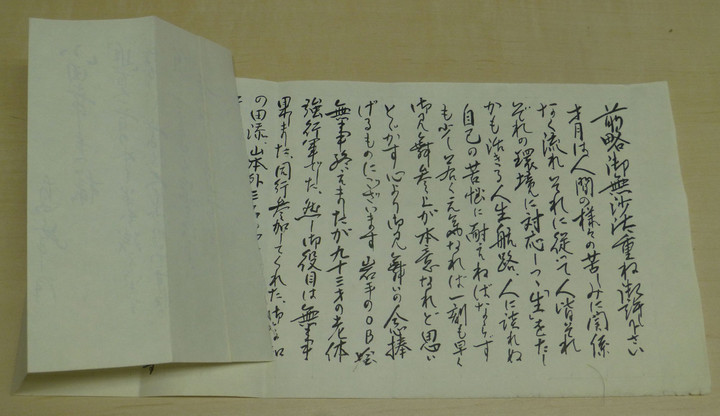 前略 御無沙汰重ね御許下さい
才月は人間の様々の苦しみに関係
なく流れ それに従って人皆それ
ぞれの環境に対応しつゝ生をた
かも活きる人生航路、人に語れぬ
自己の苦悩に耐えねばならず
も少し若く元気なれば一刻も早く
御見舞参上が本意なれど思い
とどかず心より御見舞いの念捧
げるものにございます 岩手のOB
無事終えましたが九十三才の老体
強行軍でした、然し御役目は無事
果しました、同行参加してくれた、
の田添 山本外三